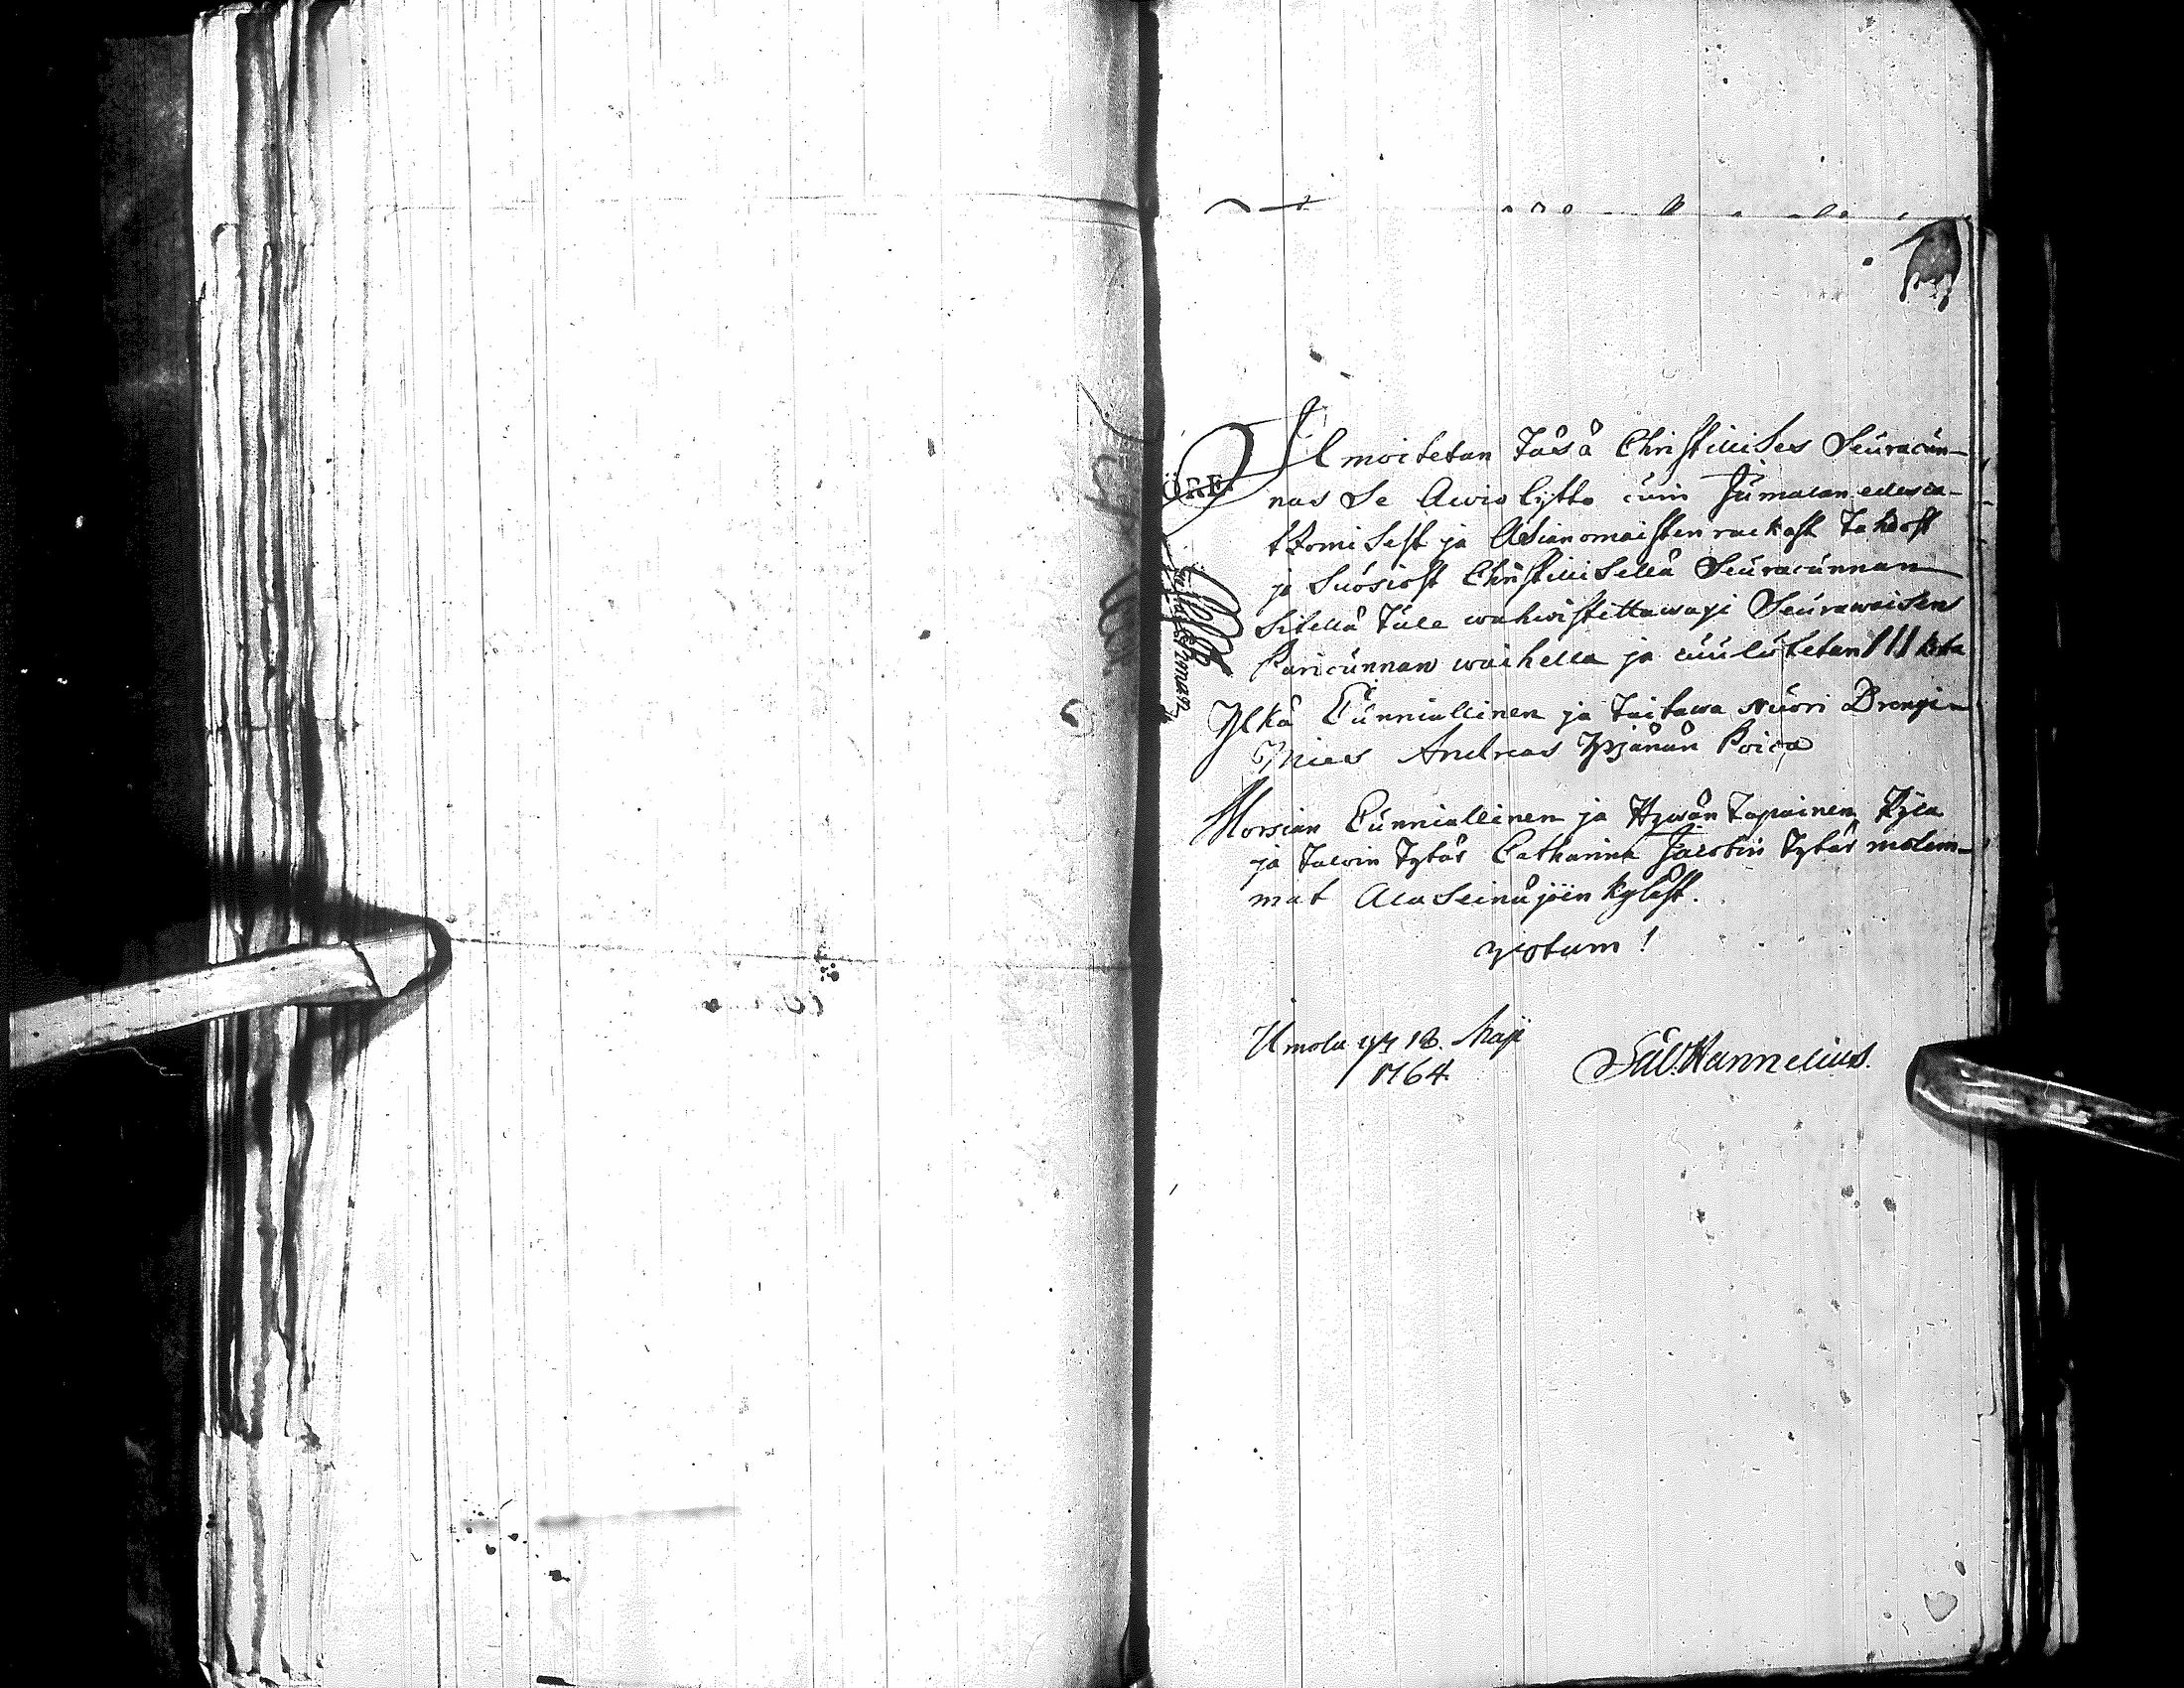 Ilmoitetan Täsä Christillises Seüracün-
nas Se Awio lijtto cuin Jümalan edesca-
tzomisest ja Asianomaisten rackast tahdost
ja Suosiost Christillisellä Seüracünnan
sitellä Tule wahwistettawaxi Seürawaisen
Pariccünnan waihella ja cuulutetan III kerta
ÖRE.
Ylkä Cünniallinen ja taitawa Nuori Drengi
Mies Andreas Yrjänän Poica
Morsian Cünniallinen ja Hywän Tapainen Kyla
ja Taloin Tytär Catharina Jacobin Tytär molem-
mat Ala Seinäjoen Kyläst.
votum!
Ilmola 18. Maji
1764.
Hannelius.